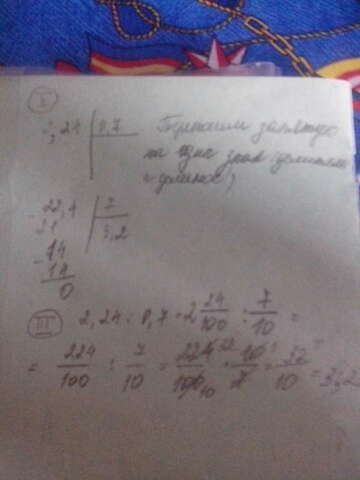 I
2,24 | 0,7 Переносим запятую
на один знак
22,4 | 7
21 3,2
- 14
14
0
III 2,24 : 0,7 = 2 24/100 : 7/10 =
= 224/100 : 7/10 = 224 32/100 10 · 10 1/7 = 32/10 = 3,2